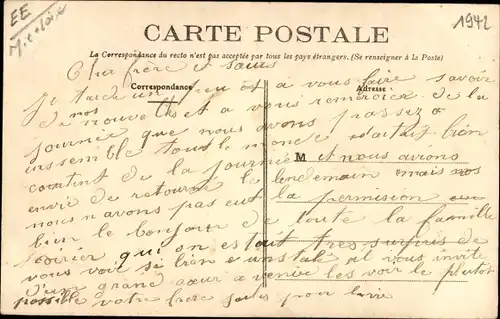 EE
M. et Loire
1942
CARTE POSTALE
La Correspondance du recto n'est pas acceptée par tous les pays étrangers. (Se renseigner à la Poste)
Cher frère et sœurs
Correspondance
Adresse
Je tarde un peu et a vous faire savoir
de nos nouvelles et a vous remercier de la
journée que nous avons passez
inssemble tous le monde était bien
contint de la journée et nous avions
M
envie de retourné le lendemain mais
nous n avons pas eut la permission
bien le bonjour de toute la famille
que on etait tres surpris de
vous voir si bien il vous invite
d'un grand cœur a venire les voir le plutot
possible votre frère pour la vie